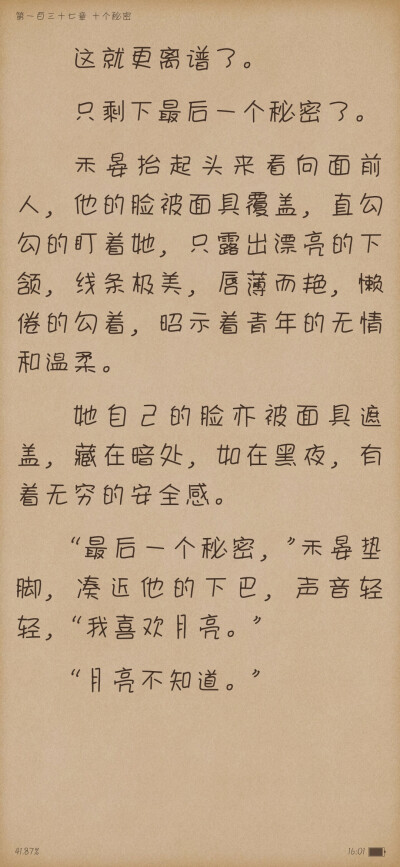 第一百三十七章 十个秘密
这就更离谱了。
只剩下最后一个秘密了。
禾晏抬起头来看向面前
人，他的脸被面具覆盖，直勾
勾的盯着她，只露出漂亮的下
颌，线条极美，唇薄而艳，懒
倦的勾着，昭示着青年的无情
和温柔。
她自己的脸亦被面具遮
盖，藏在暗处，如在黑夜，有
着无穷的安全感。
“最后一个秘密，”禾晏垫
脚，凑近他的下巴，声音轻
轻，“我喜欢月亮。”
“月亮不知道。”
41.87% 16:01